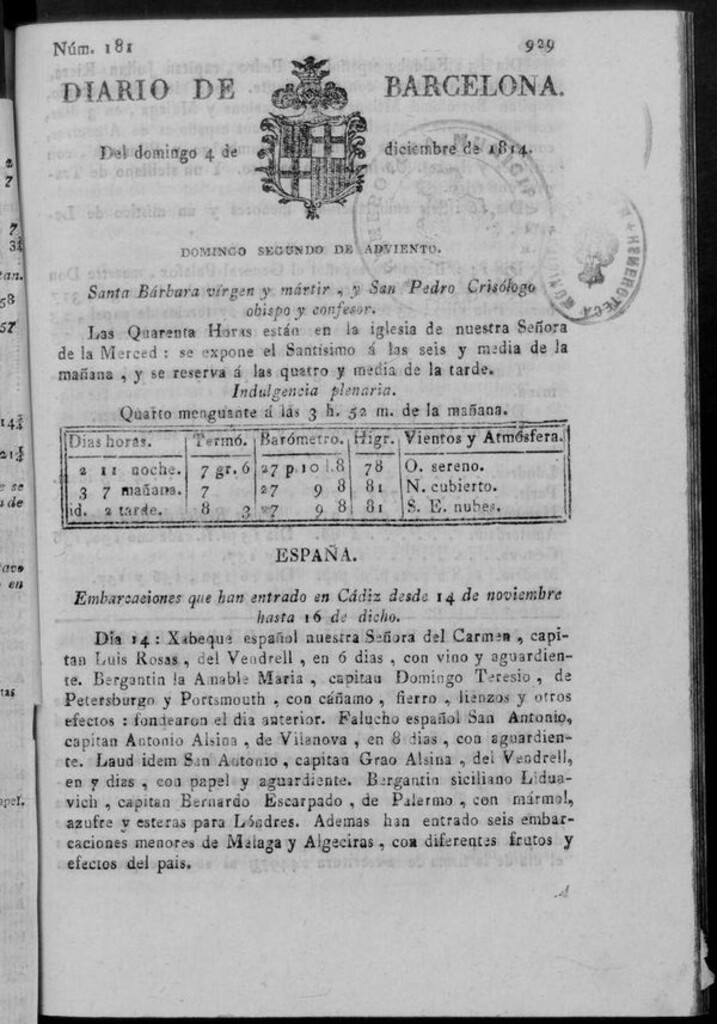 Núm. 181 929
DIARIO DE BARCELONA.
Del domingo 4 de diciembre de 1814.
DOMINGO SEGUNDO DE ADVIENTO.
Santa Bárbara vírgen y mártir, y San Pedro Crisólogo
obispo y confesor.
Las Quarenta Horas están en la iglesia de nuestra Señora
de la Merced: se expone el Santísimo á las seis y media de la
mañana, y se reserva á las quatro y media de la tarde.
Indulgencia plenaria.
Quarto menguante á las 3 h. 52 m. de la mañana.
Dias horas. Termó. Barómetro. Higr. Vientos y Atmósfera.
2 11 noche. 7 gr. 6 27 p. 10 l. 8 78 O. sereno.
3 7 mañana. 7 27 9 8 81 N. cubierto.
id. 2 tarde. 8 3 27 9 8 81 S. E. nubes.
ESPAÑA.
Embarcaciones que han entrado en Cádiz desde 14 de noviembre
hasta 16 de dicho.
Dia 14: Xabeque español nuestra Señora del Carmen, capi-
tan Luis Rosas, del Vendrell, en 6 dias, con vino y aguardien-
te. Bergantin la Amable Maria, capitan Domingo Teresio, de
Petersburgo y Portsmouth, con cáñamo, fierro, lienzos y otros
efectos: fondearon el dia anterior. Falucho español San Antonio,
capitan Antonio Alsina, de Vilanova, en 8 dias, con aguardien-
te. Laud idem San Antonio, capitan Grao Alsina, del Vendrell,
en 7 dias, con papel y aguardiente. Bergantin siciliano Lidua-
vich, capitan Bernardo Escarpado, de Palermo, con mármol,
azufre y esteras para Lóndres. Ademas han entrado seis embar-
caciones menores de Málaga y Algeciras, con diferentes frutos y
efectos del pais.
HEMEROTECA